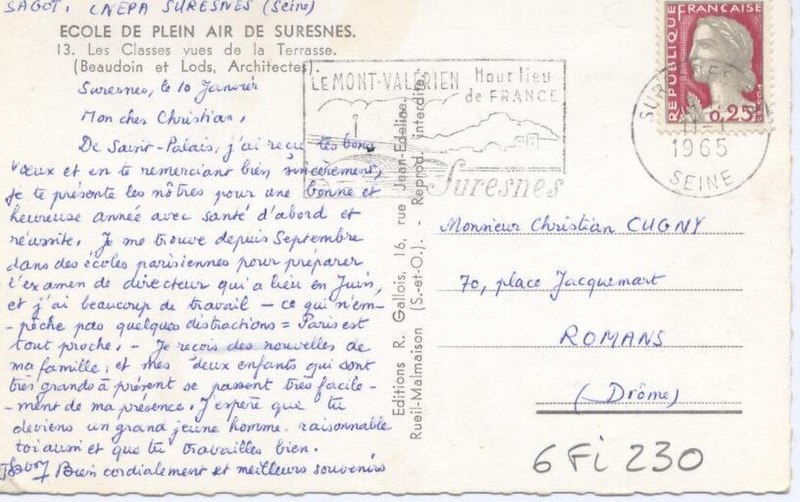 SAGOT. CNEPA SURESNES (Seine)
ECOLE DE PLEIN AIR DE SURESNES.
13. Les Classes vues de la Terrasse.
(Beaudoin et Lods, Architectes).
Suresnes, le 10 Janvier
Mon cher Christian,
De Saint-Palais, j'ai reçu tes bons
vœux et en te remerciant bien sincèrement,
je te présente les nôtres pour une bonne et
heureuse année avec santé d'abord et
réussite. Je me trouve depuis Septembre
dans des écoles parisiennes pour préparer
l'examen de directeur qui a lieu en Juin,
et j'ai beaucoup de travail - ce qui n'em-
-pêche pas quelques distractions = Paris est
tout proche. - Je reçois des nouvelles de
ma famille, et mes deux enfants qui sont
très grands à présent se passent très facile-
-ment de ma présence. J'espère que tu
deviens un grand jeune homme raisonnable
toi aussi et que tu travailles bien.
Bien cordialement et meilleurs souvenirs
Editions R. Gallois, 16, rue Jean-Edeline,
Rueil-Malmaison (S.-et-O.). - Reprod. interdite.
LE MONT-VALÉRIEN Haut lieu
de FRANCE
Suresnes
REPUBLIQUE FRANÇAISE
0,25
SURESNES
1965
SEINE
Monsieur Christian CUGNY
70, place Jacquemart
ROMANS
(Drôme)
6 Fi 230